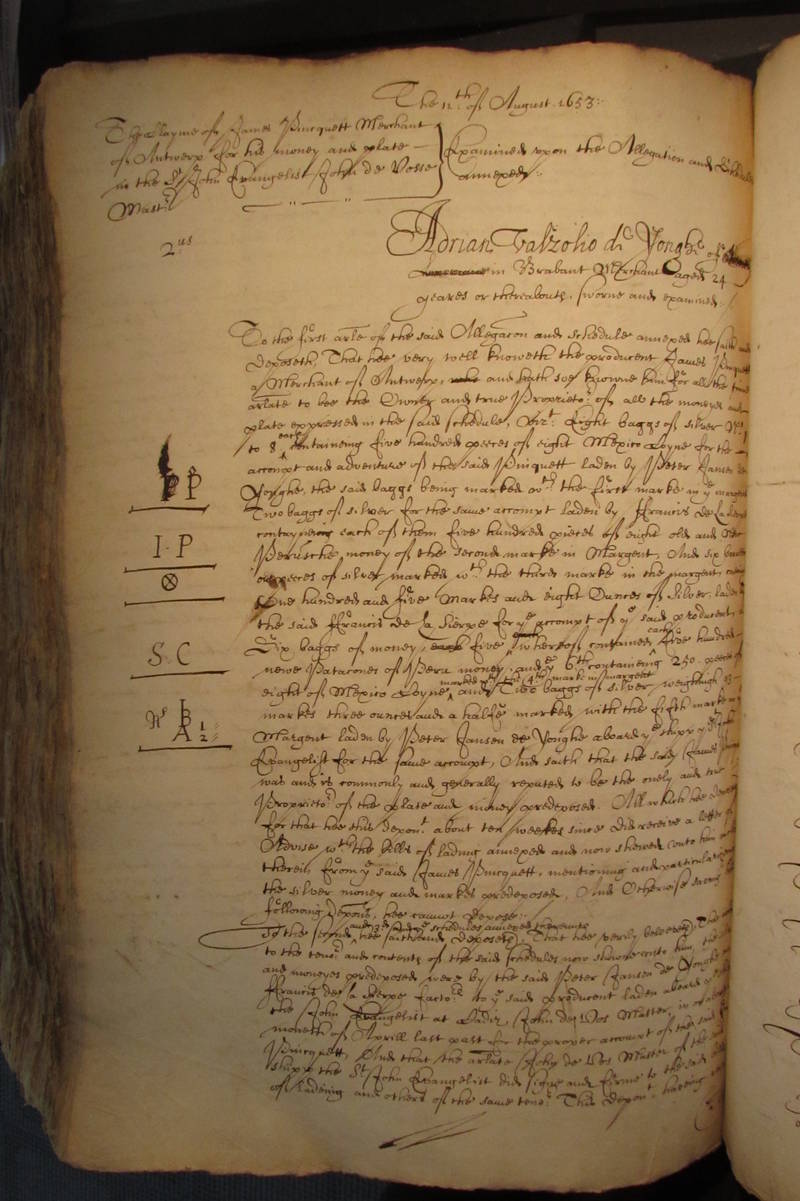 The 11th. of August. 1653:
The Clayme of James Pincquett Merchant
of Antwerp for his money and plate
in the St. John Evangelist John de Vosse
Mastr.
Examined upon the Allegation and Schedule
annexed:
2us
Adrian Valzolio de Yonghe of
in Brabant Merchant aged 24
yeares or thereabouts, sworne and examined.
To the first arle of the said Allegacon and schedule annexed hee saith and
deposeth, That hee very well knoweth the producent James Pincquett
a Merchant of Antwerp, and hath soe knowne him for all the time
arlate to bee the Owner and true Proprietor. of all the moneyes and
plate expressed in the said schedule, Vizt. Eight baggs of silver No. 1
to 8 each containeing five hundred peeces of eight Mexico Coyne for the
accompt and adventure of the said Pincquett laden by Peter Jansen de
Yonghe, the said baggs being marked wth. the first marke in ye margent
P P
Two baggs of silver for the same accompt laden by ffrancis de la Sierpe
contayneing each of them five hundred pieces of eight old and
I·P
Perutche money of the second marke in Margent, And six
peeces of silver marked wth. the third marke in the margent,
One hundred and five Markes and eight Ounces of Silver, laden
the said ffrancis de la Sierpe for ye accompt of ye said producent,
Six baggs of money, five whereof contained each five hundred
S. C
newe Patacones of Peru money, and ye 6th containeing 250 peeces
marked wth the 4th marke in margent
eight of Mexico Coyne, and Two baggs of silver, weighing
markes three ounces and a halfe marked with the fifth marke
No A 1/2
Margent laden by Peter Jansen de Yonghe aboard ye shipp ye St John
Evangelist for the same accompt, And saith that the said James
was and is commonly and generally reputed to be the onely and true
Proprietor. of the plate and money predeposed. All which hee
for that hee this depont. about ten weekes since did receive a letter of
Advise wth. the bills of lading annexed and now showed unto him
therein, from ye said James Pincquett, mentioning and particularizing
the silver money and markes predeposed, And Otherwise saving
following deposn. hee cannot depose:
and 3d and ye schedules annexed
To the second hee saith and deposeth, That hee verily beleeveth, That
to the tenor. and contents of the said schedules now showne unto him, the
and moneyes predeposed were by the said Peter Jansen de Yonghe
ffrancis de la Sierpe factors. to ye said producent laden aboard ye
the John Evangelist at Cadiz, John de Vos Master, in
moneth of Aprill last past for the proper accompt of the said
Pincquett, And that the arlate John de Vos Master of the
shipp the St. John Evangelist did signe and firme to the said
of ladeing and others of the same tenor. This depont. having